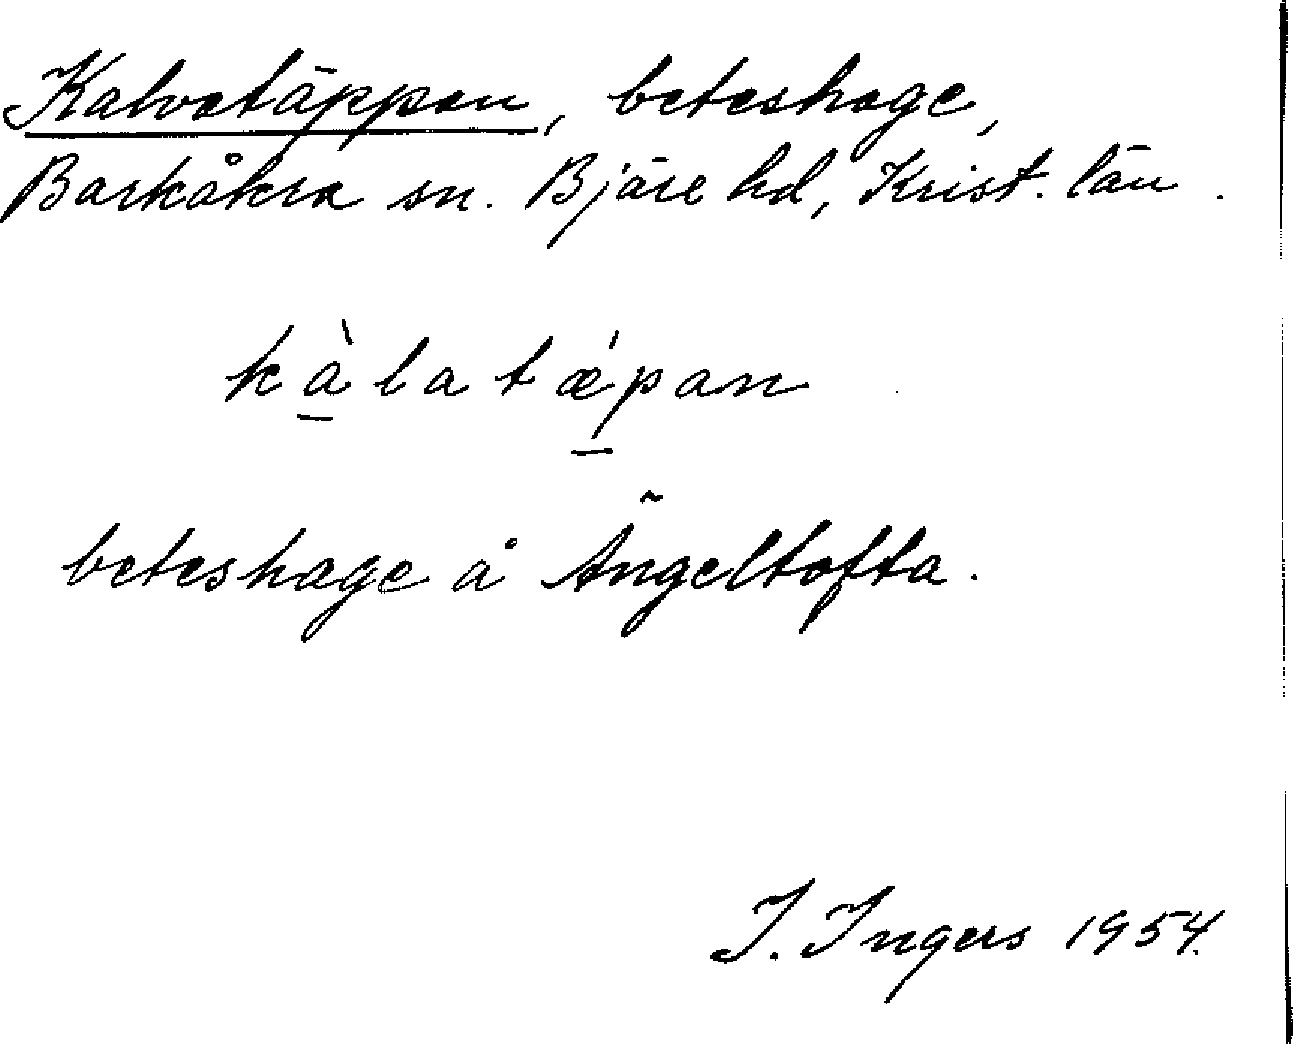 Kalvatäppan, beteshage,
Barkåkra sn. Bjäre hd, Krist. län.
kàlatǽpan
beteshage å Ängeltofta.
I. Ingers 1954.